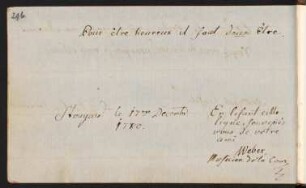 296
Pour être heureux il faut être.
le 17me Decembre
1780.
En lisant cette
ligne souvenés
vous de votre
ami
Weber
Musicien de la Cour